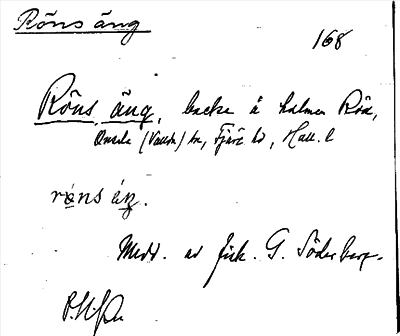 Röns äng
168
Röns äng, backe å holmen Röd,
Onsala (Vallda) sn, Fjäre hd, Hall. l
Medd. av fisk. G. Söderberg.